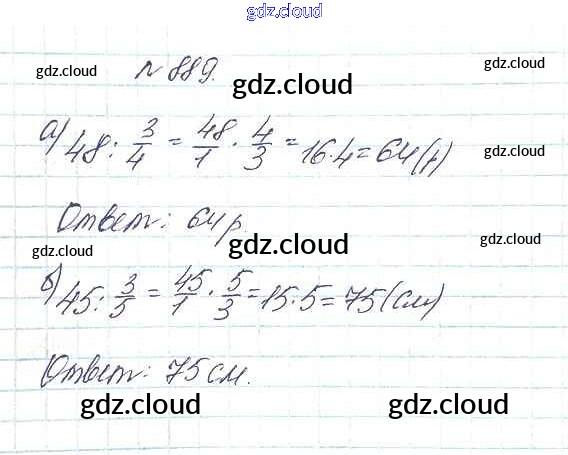 gdz.cloud
gdz.cloud № 889. gdz.cloud gdz.cloud
а) 48 : 3/4 = 48/1 · 4/3 = 16·4 = 64 (р) gdz.cloud
Ответ: 64 р.
gdz.cloud gdz.cloud gdz.cloud
б) 45 : 3/5 = 45/1 · 5/3 = 15·5 = 75 (см)
Ответ: 75 см.
gdz.cloud gdz.cloud